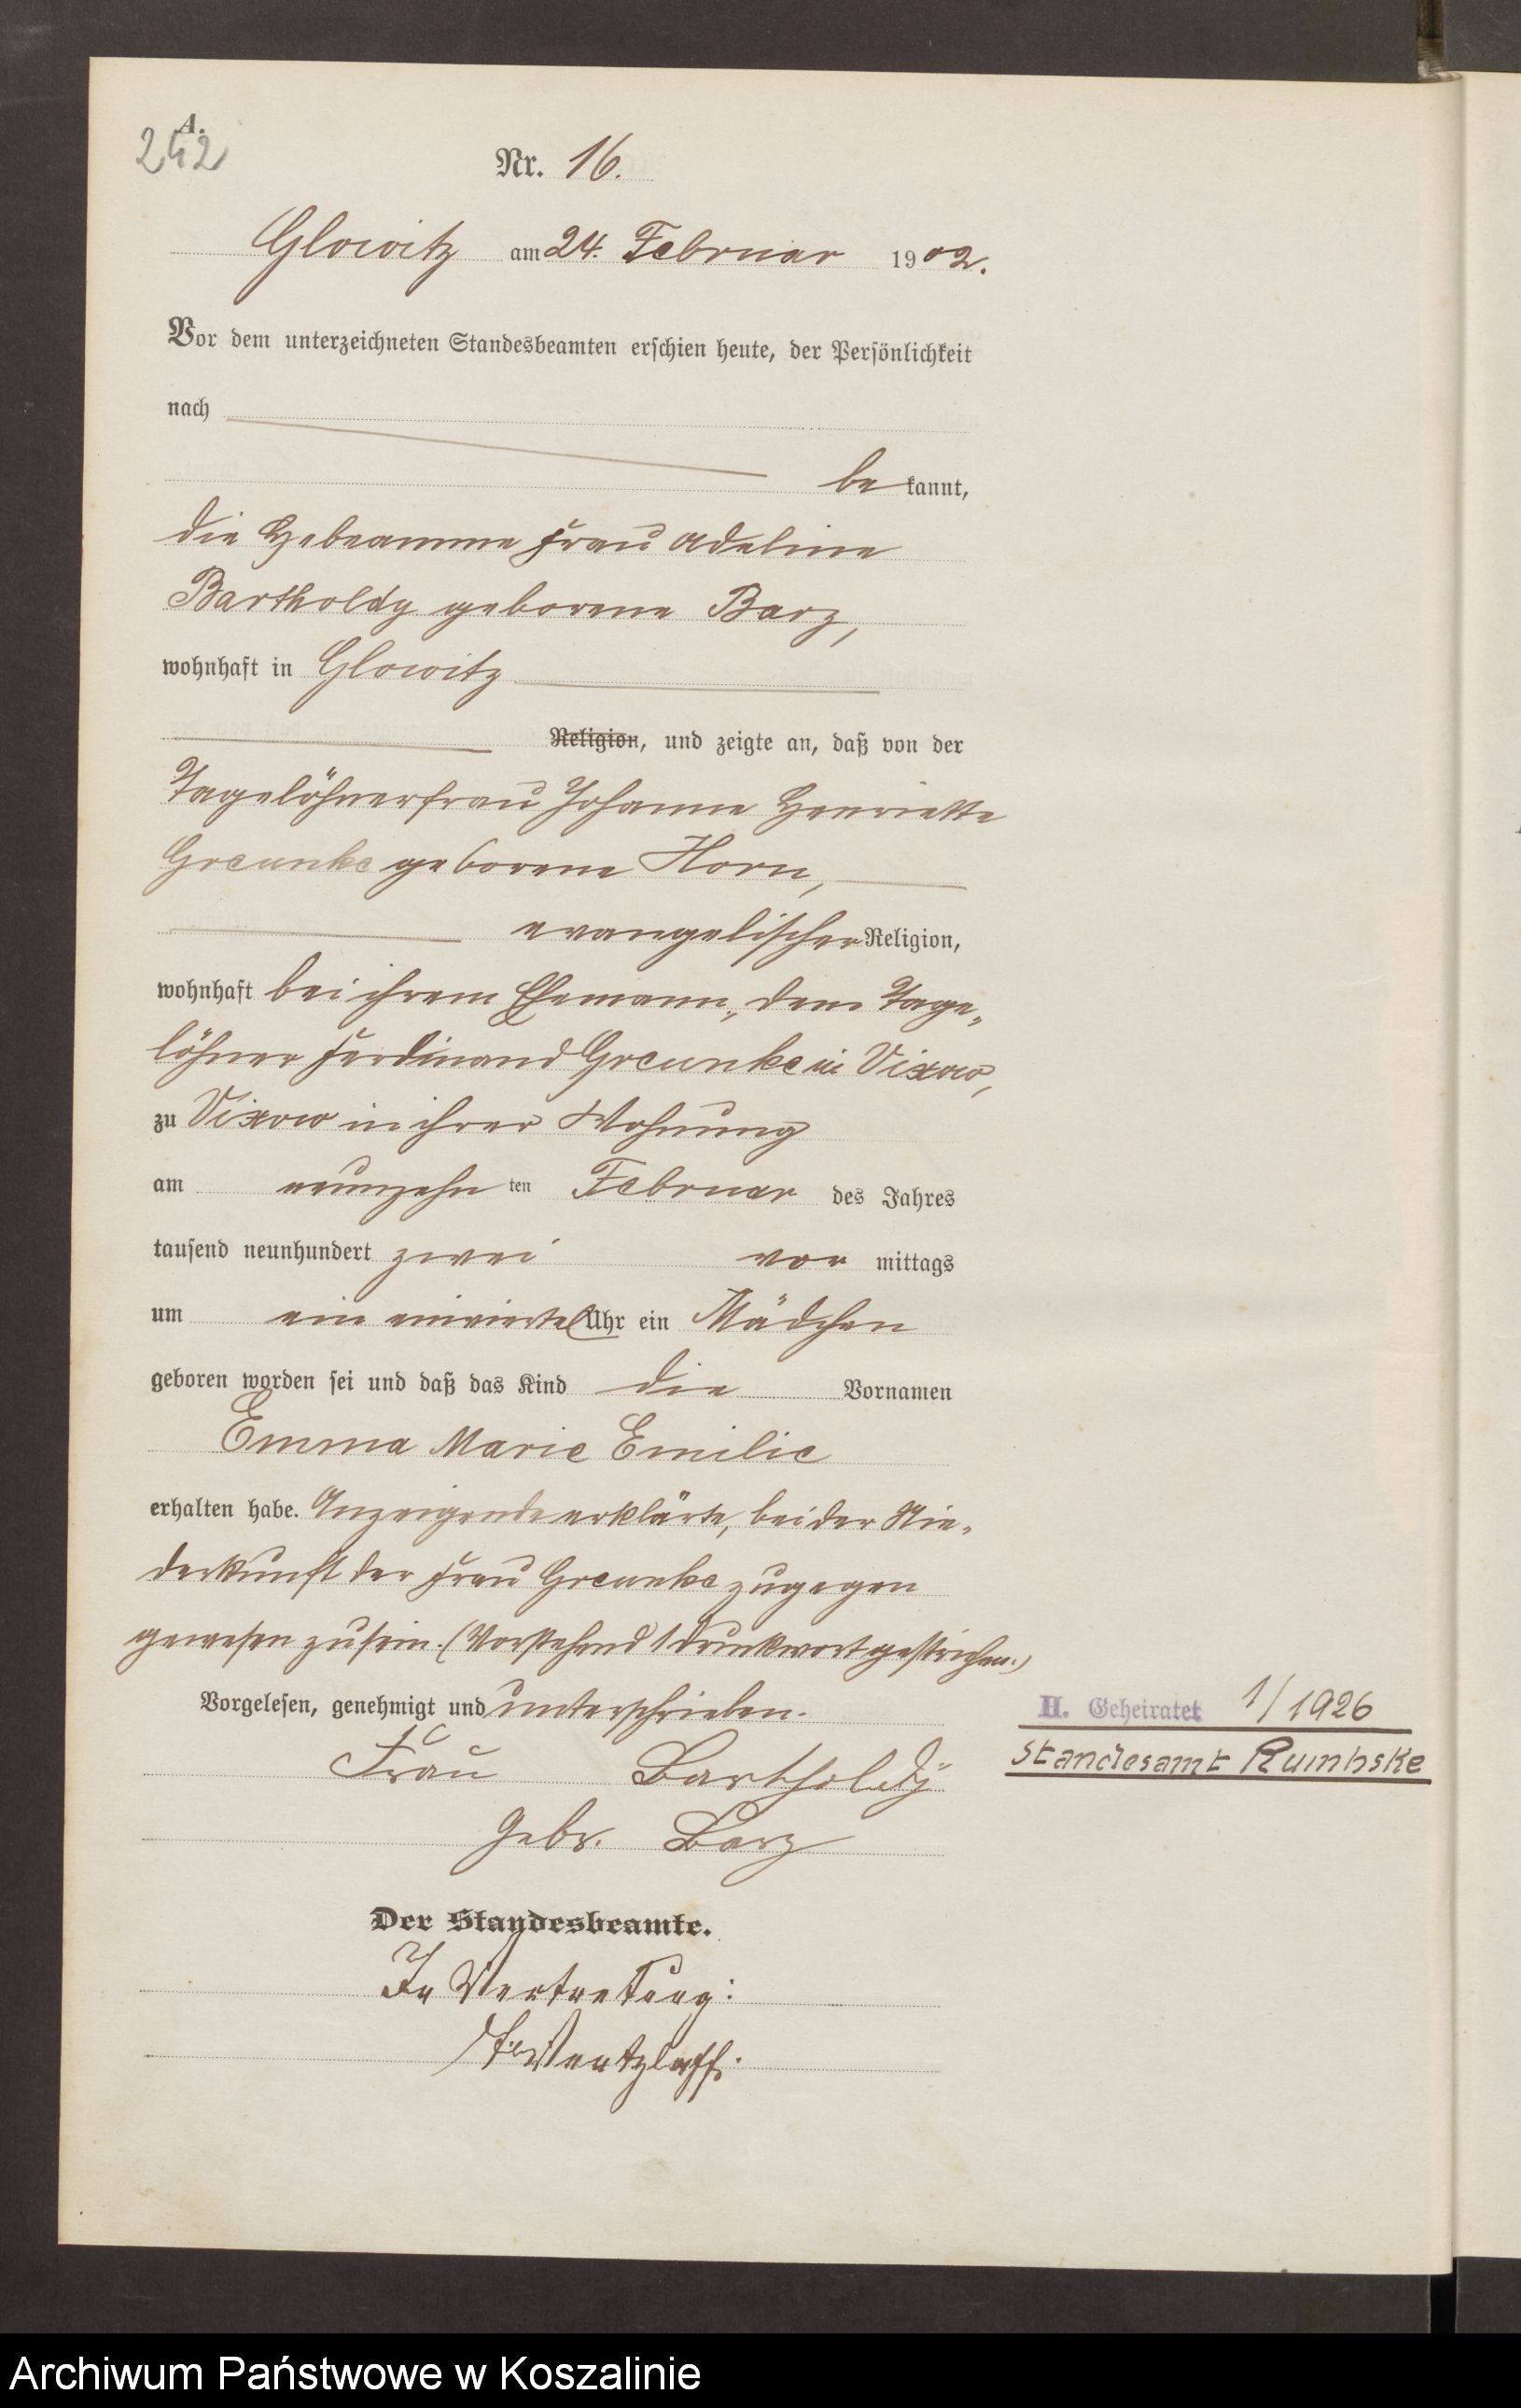 A.
242
Nr. 16.
Glowitz am 24. Februar 1902.
Vor dem unterzeichneten Standesbeamten erschien heute, der Persönlichkeit
nach
be kannt,
die Hebeamme Frau Adeline
Bartholdy geborene Barz,
wohnhaft in Glowitz
Religion, und zeigte an, daß von der
Tagelöhnerfrau Johanne Henriette
Greunke geborene Horn,
evangelischer Religion,
wohnhaft bei ihrem Ehemann, dem Tage-
löhner Ferdinand Greunke in Vixow,
zu Vixow in ihrer Wohnung
am neunzehn ten Februar des Jahres
tausend neunhundert zwei vor mittags
um ein einviertel Uhr ein Mädchen
geboren worden sei und daß das Kind die Vornamen
Emma Marie Emilie
erhalten habe. Anzeigende erklärte, bei der Nie-
derkunft der Frau Greunke zugegen
gewesen zu sein. (Vorstehend 1 Druckwort gestrichen.)
Vorgelesen, genehmigt und unterschrieben.
Frau Bartholdy
gebr. Barz
Der Standesbeamte.
In Vertretung:
Wentzlaff.
H. Geheiratet 1/1926
Standesamt Rumbske
Archiwum Państwowe w Koszalinie